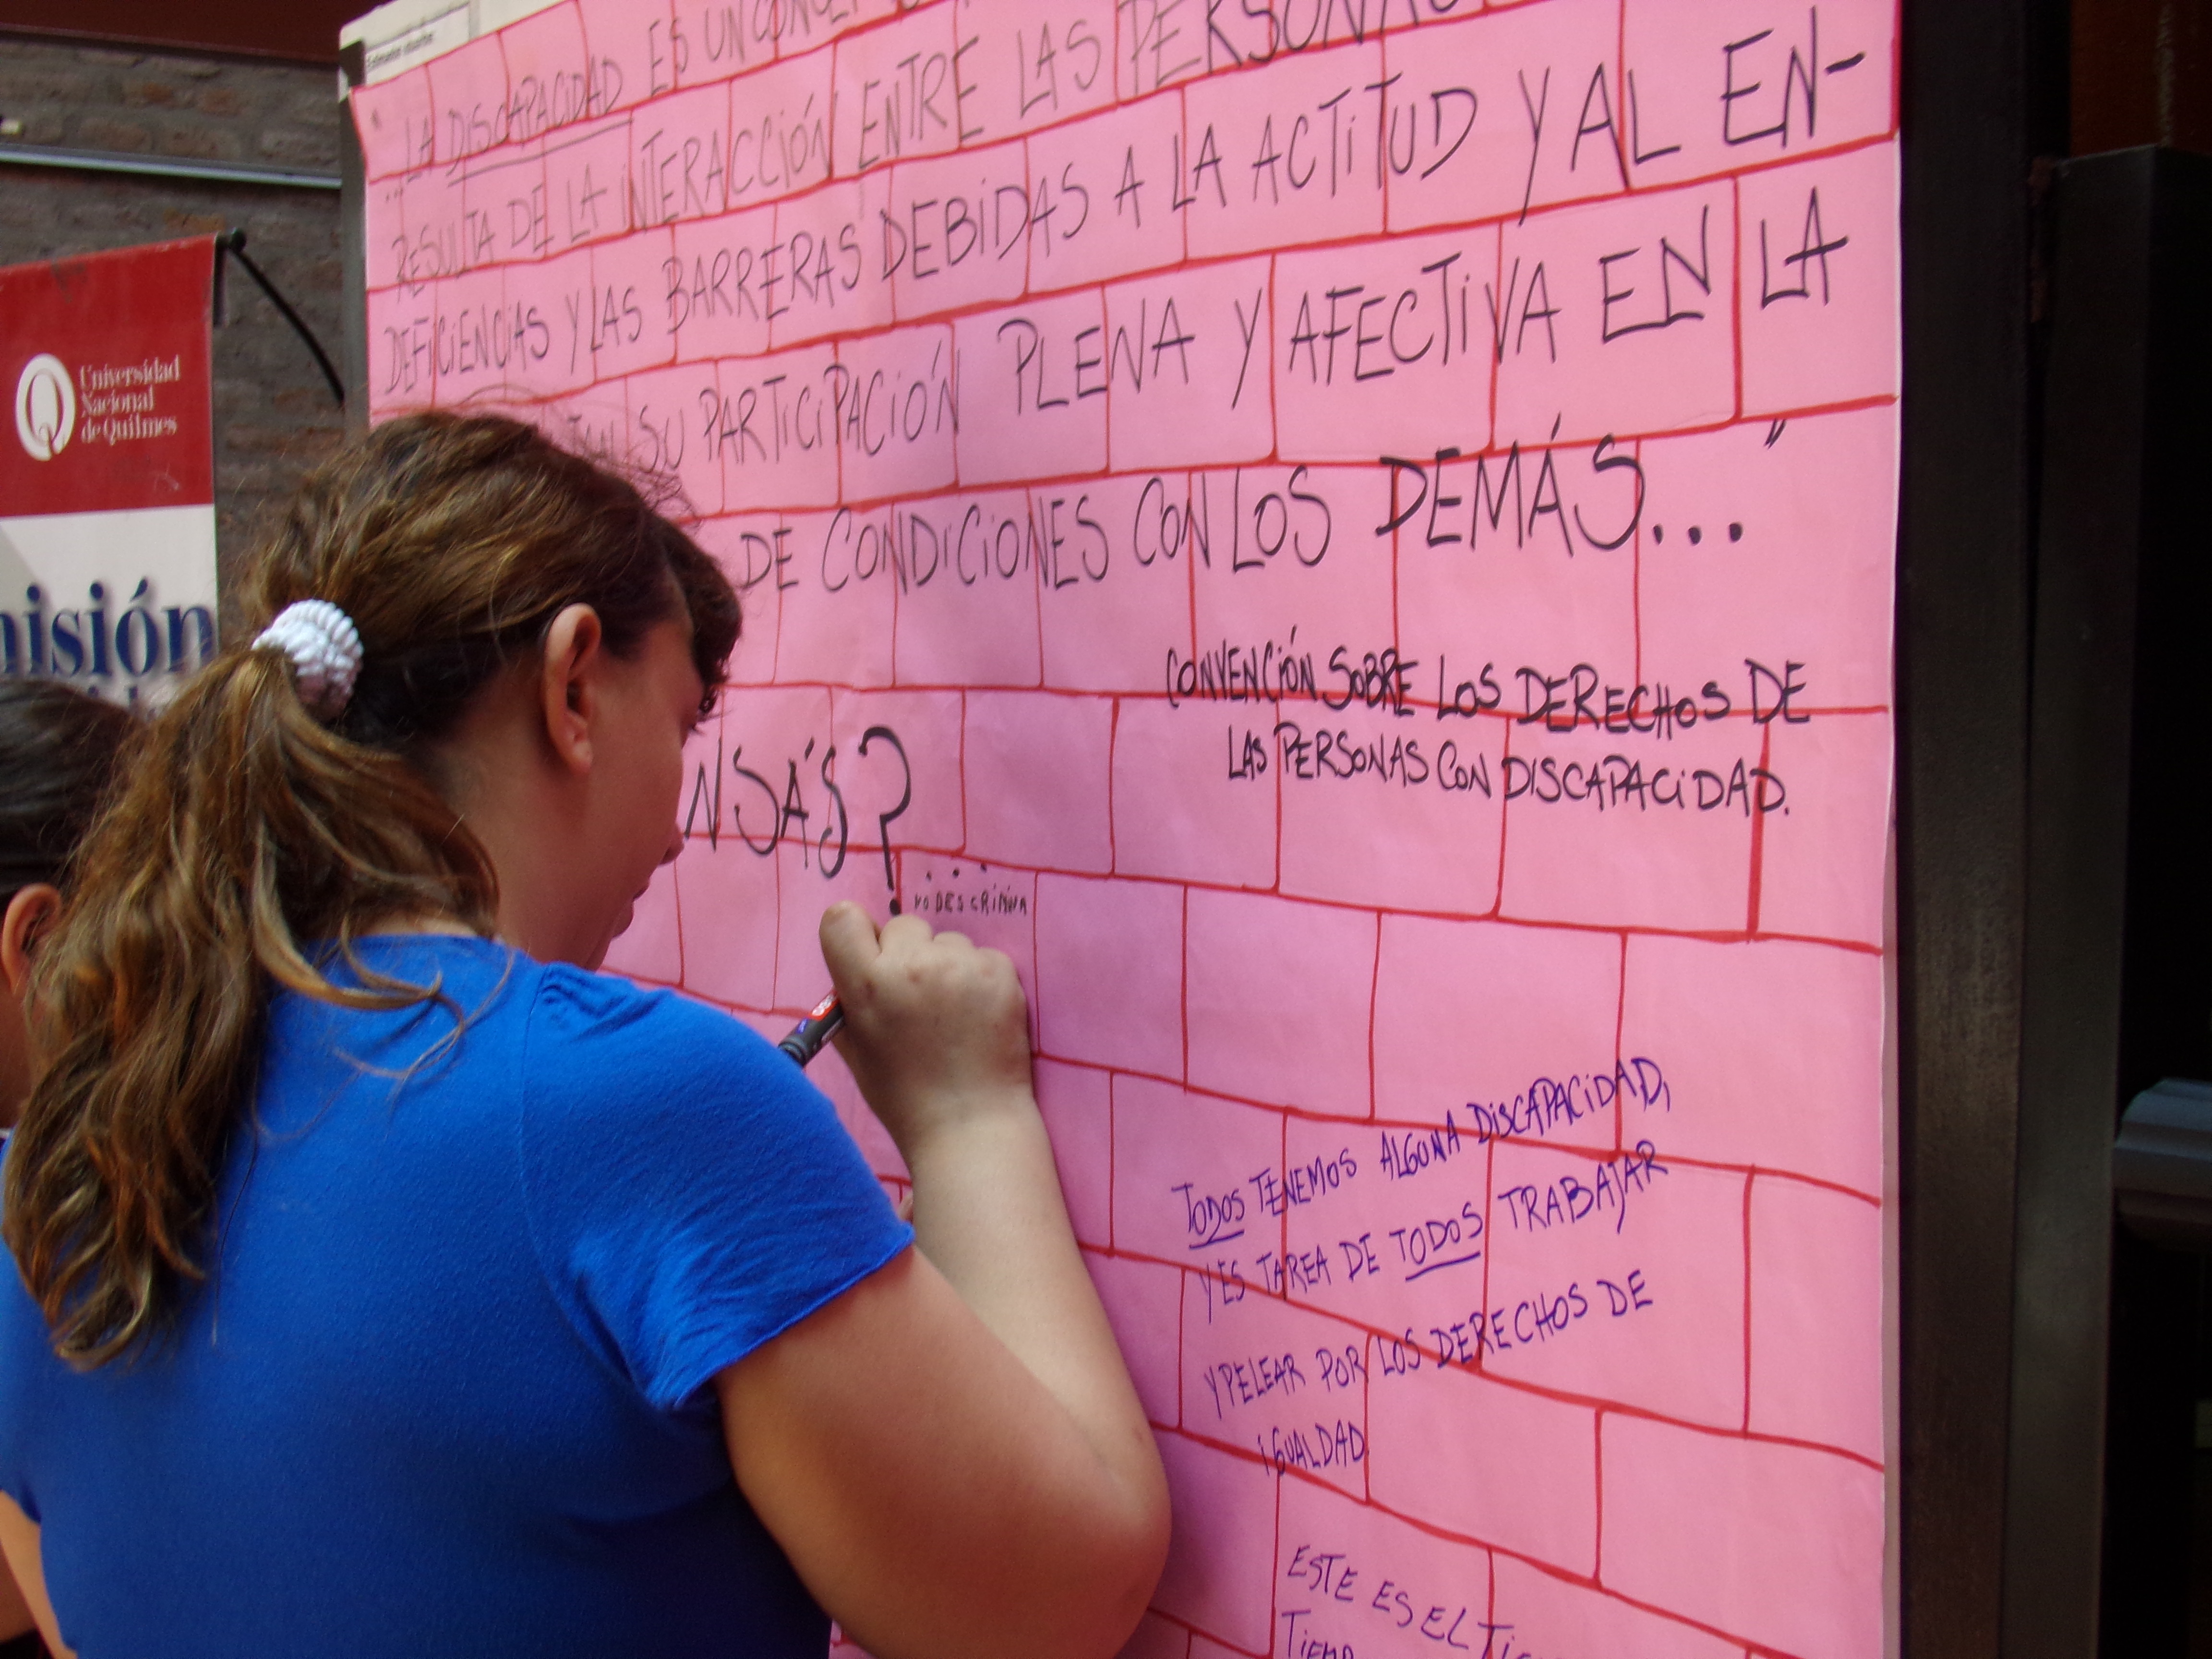 Universidad
Nacional
de Quilmes
misión
"...LA DISCAPACIDAD ES UN
RESULTA DE LA INTERACCIÓN ENTRE LAS PERSONAS
DEFICIENCIAS Y LAS BARRERAS DEBIDAS A LA ACTITUD Y AL EN-
SU PARTICIPACIÓN PLENA Y AFECTIVA EN LA
DE CONDICIONES CON LOS DEMÁS..."
CONVENCIÓN SOBRE LOS DERECHOS DE
LAS PERSONAS CON DISCAPACIDAD.
NSÁS?
...
NO DESCRIMINA
TODOS TENEMOS ALGUNA DISCAPACIDAD,
Y ES TAREA DE TODOS TRABAJAR
Y PELEAR POR LOS DERECHOS DE
IGUALDAD
ESTE ES EL